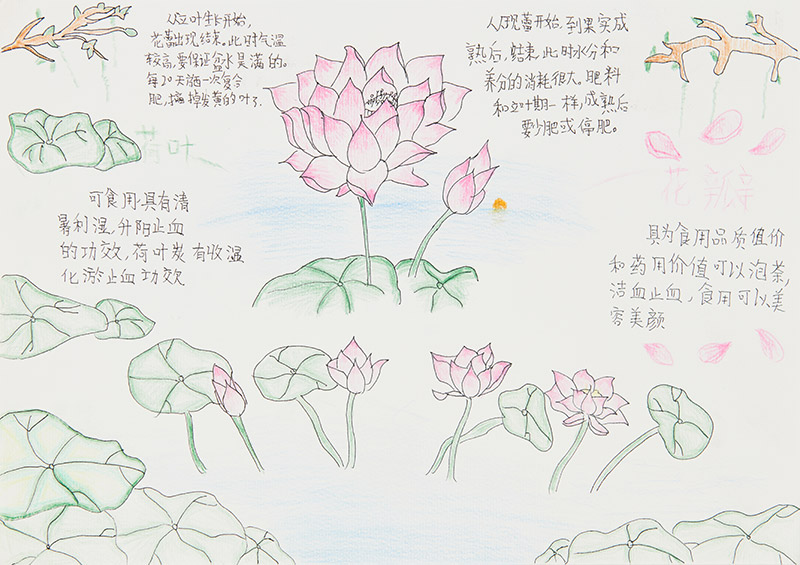 从立叶生长开始,
花蕾出现结束。此时气温
较高,要保证盆水是满的。
每20天施一次复合
肥,摘掉发黄的叶子
人现蕾开始,到果实成
熟后,结束,此时水分和
养分的消耗很大。肥料
和立叶期一样,成熟后
要少肥或停肥。
荷叶
可食用,具有清
暑利湿,升阳止血
的功效,荷叶炭有收涩
化淤止血功效
花瓣
具为食用品质值价
和药用价值可以泡茶,
洁血止血,食用可以美
容美颜